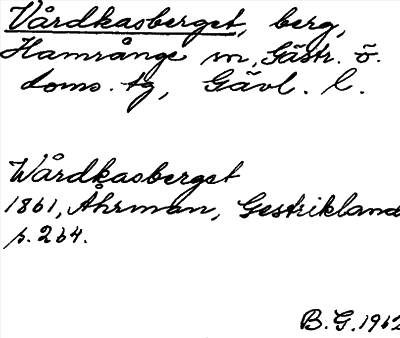 Vårdkasberget, berg,
Hamrånge sn, Gästr. ö.
doms. tg, Gävl. l.
Wårdkasberget
1861, Åhrman, Gestrikland
s. 264.
B.G. 1962